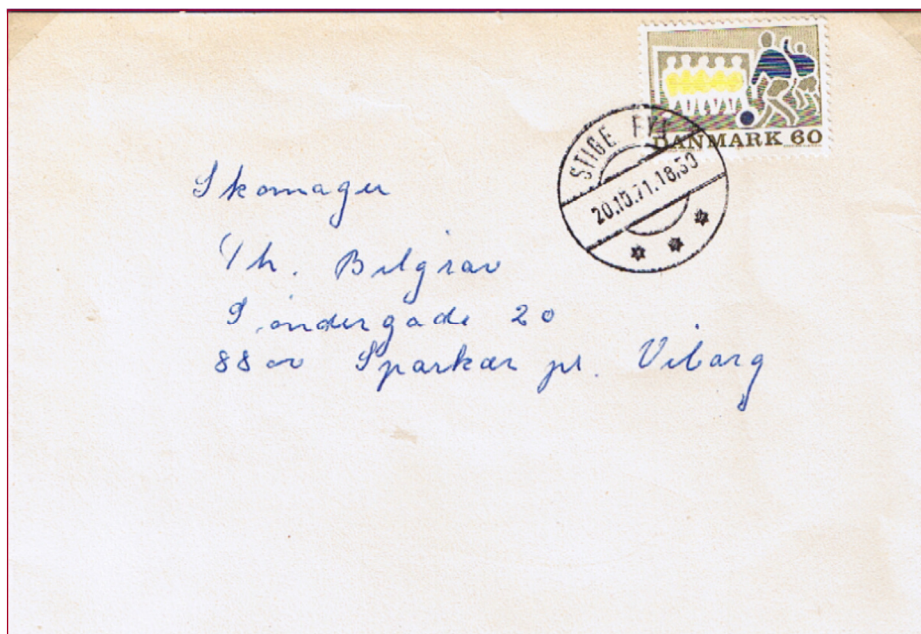 DANMARK 60
STIGE FYN
20.10.71.18,30
Skomager
Th. Bilgrav
Søndergade 20
8800 Sparkær pr. Viborg